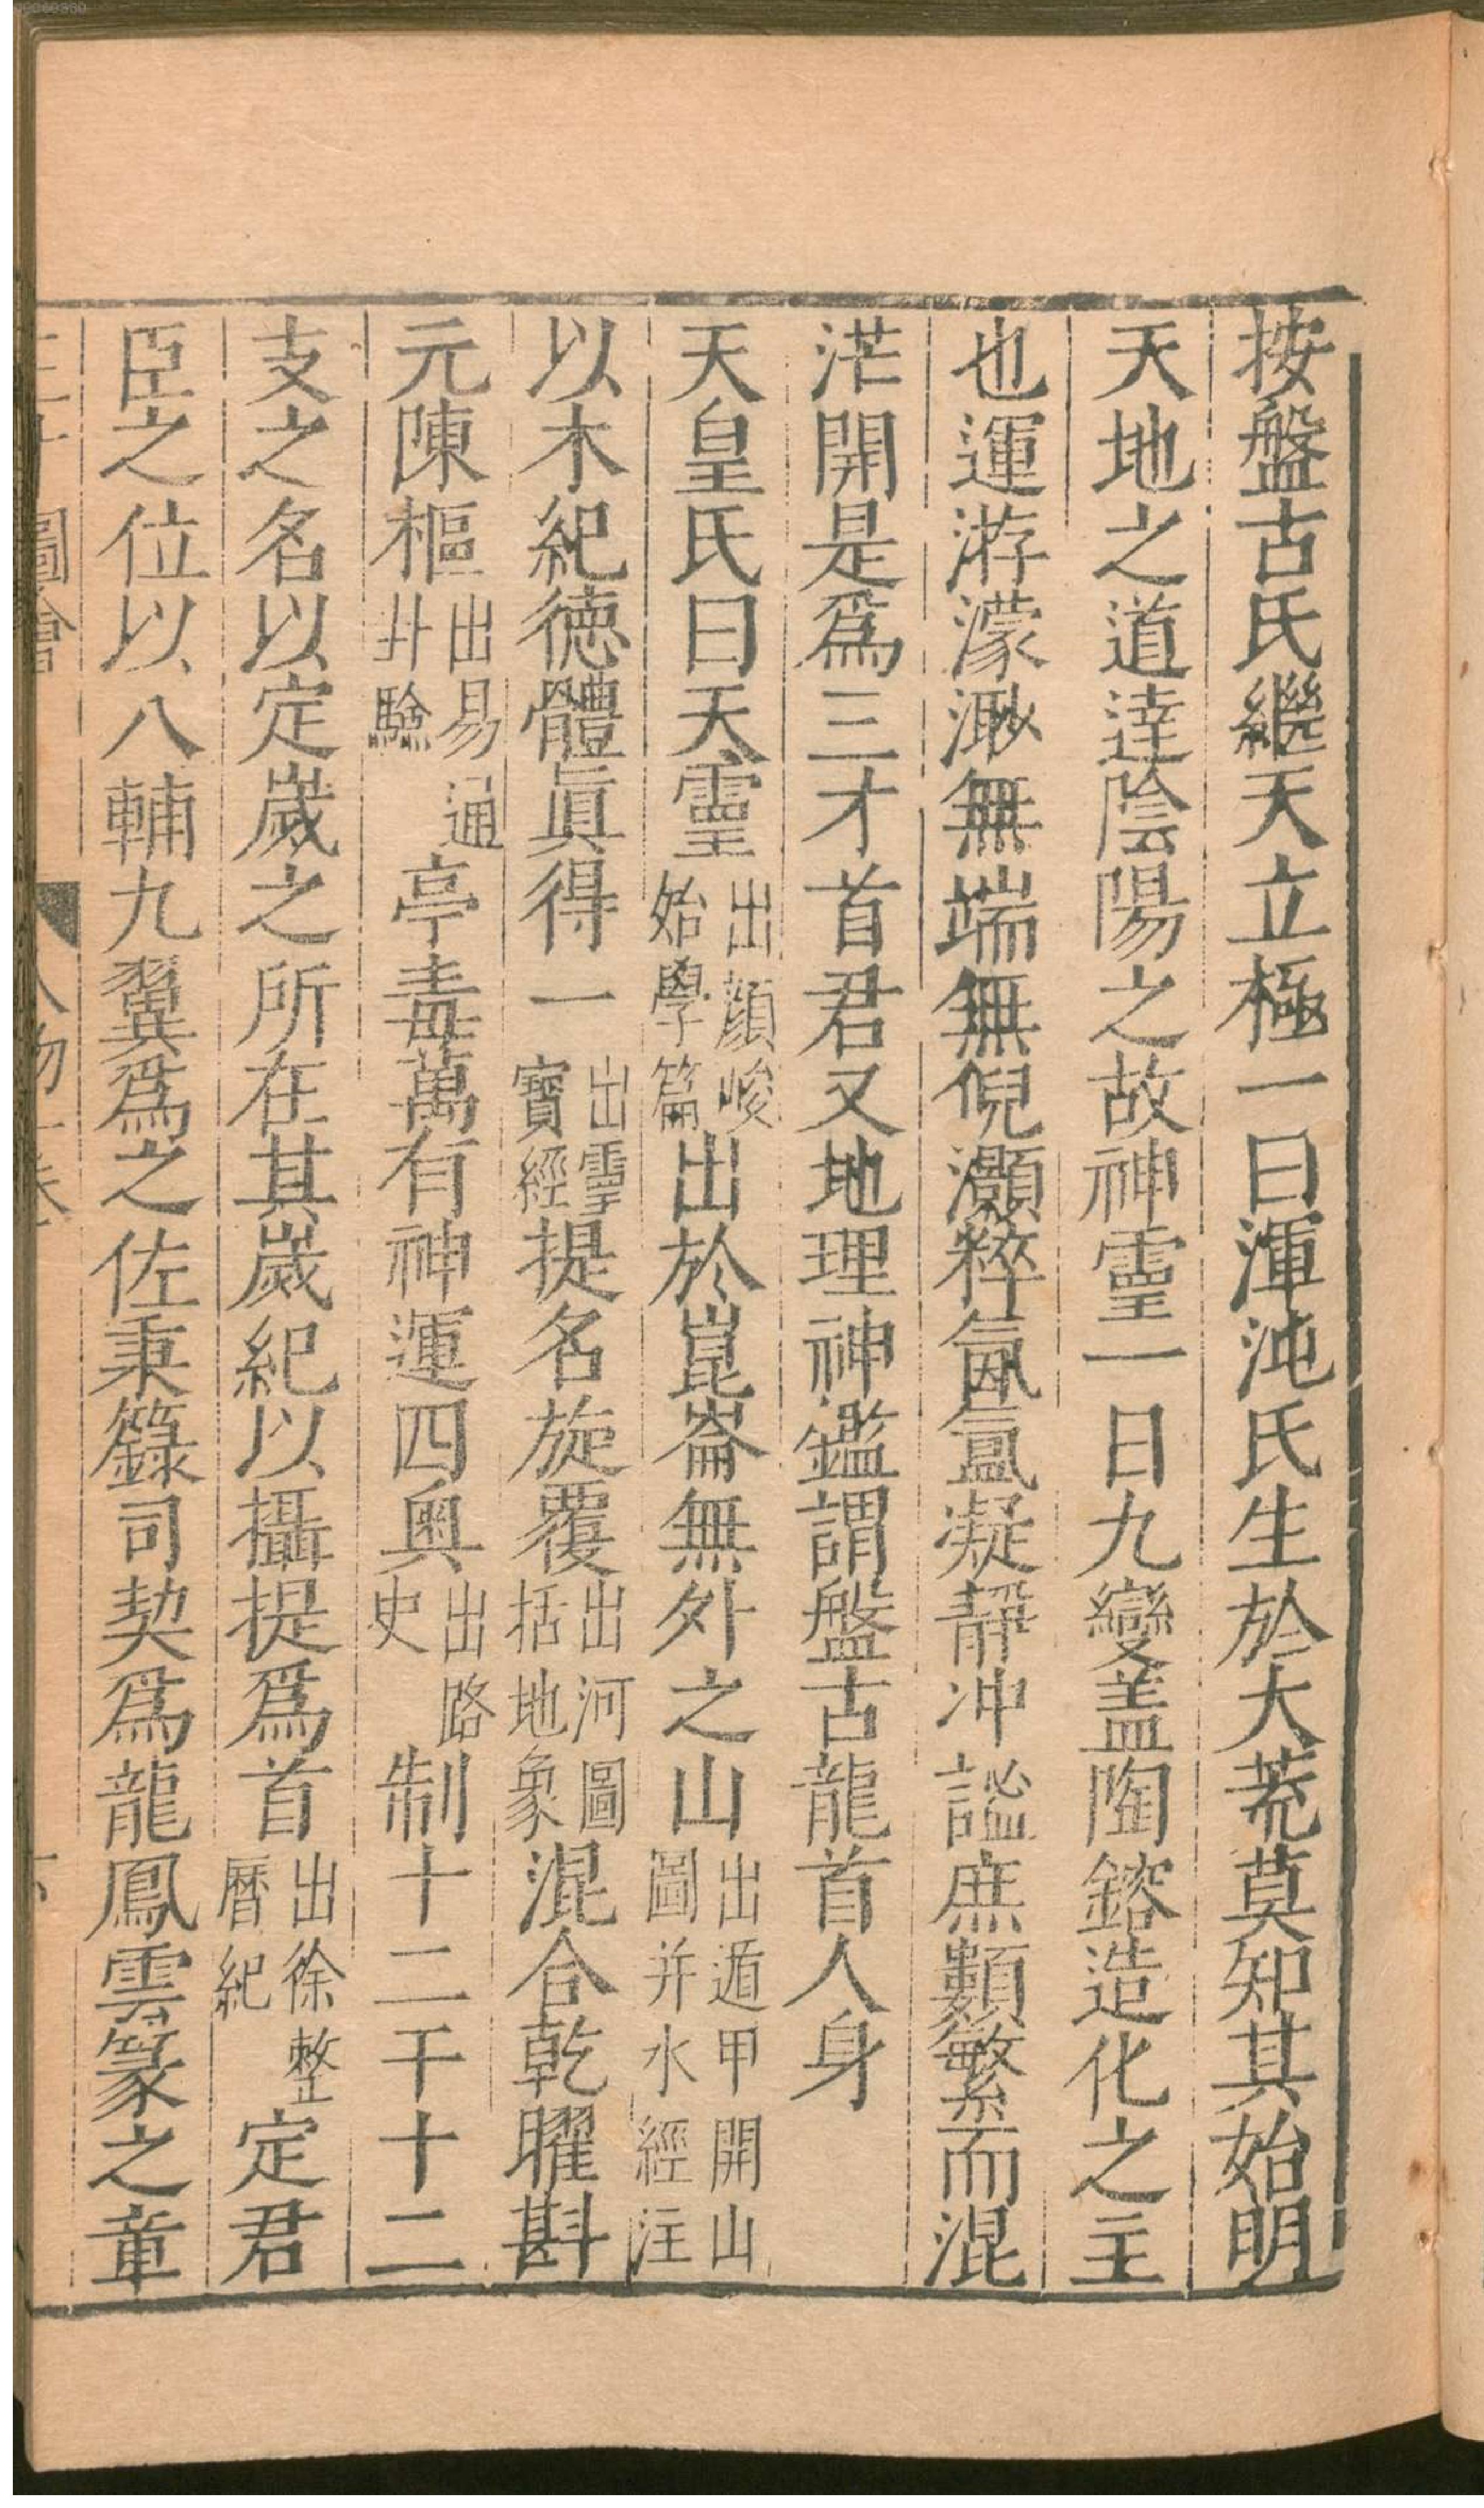 按盤古氏繼天立極一曰渾沌氏生於大荒莫知其始明
天地之道達陰陽之故神靈一日九變盖陶鎔造化之主
也運游濛渺無端無倪灝粹氤氳凝靜冲謐庶類繁而混
茫開是爲三才首君又地理神鑑謂盤古龍首人身
天皇氏曰天靈出顔峻始學篇出於崑崙無外之山出遁甲開山圖并水經注
以木紀德體眞得一出靈寶經提名旋覆出河圖括地象混合乾曜斟
元陳樞出易通卦驗亭毒萬有神運四奥出路史制十二干十二
支之名以定歲之所在其歲紀以攝提爲首出徐整曆紀定君
臣之位以八輔九翼爲之佐秉籙司契爲龍鳳雲篆之章
圖會 人物一卷